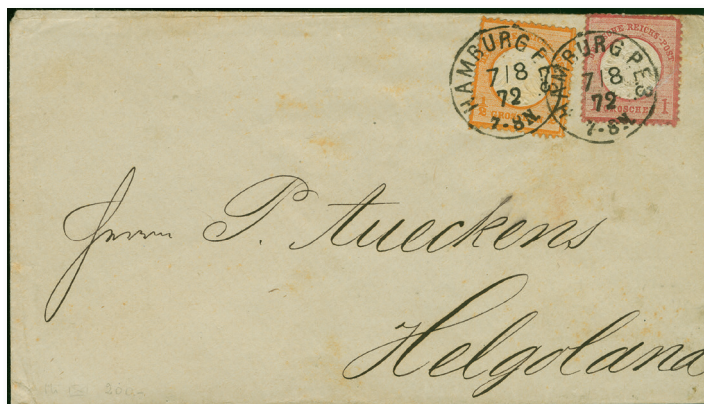 HAMBURG P.E.3.
7/8
72
7-8N.
½
HAMBURG P.E.3.
7/8
72
7-8N.
REICHS-POST
GROSCHEN 1
Herrn P. Aueckens
Helgoland